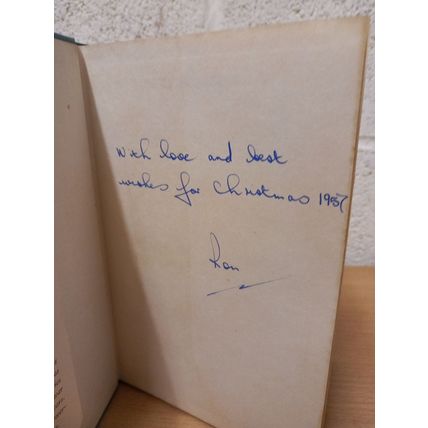 With love and best
wishes for Christmas 1957
Ron